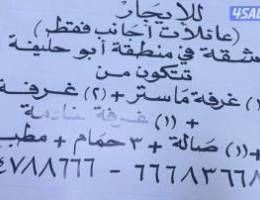 4SALE
للإيجار
(عائلات أجانب فقط)
شقة في منطقة أبو حليفة
تتكون من
(١) غرفة ماستر + (٢) غرفة
+ (١) غرفة خادمة
(١) صالة + ٣ حمام + مطب
٤٧٨٨٦٦٦ - ٦٦٦٨٣٦٦٨